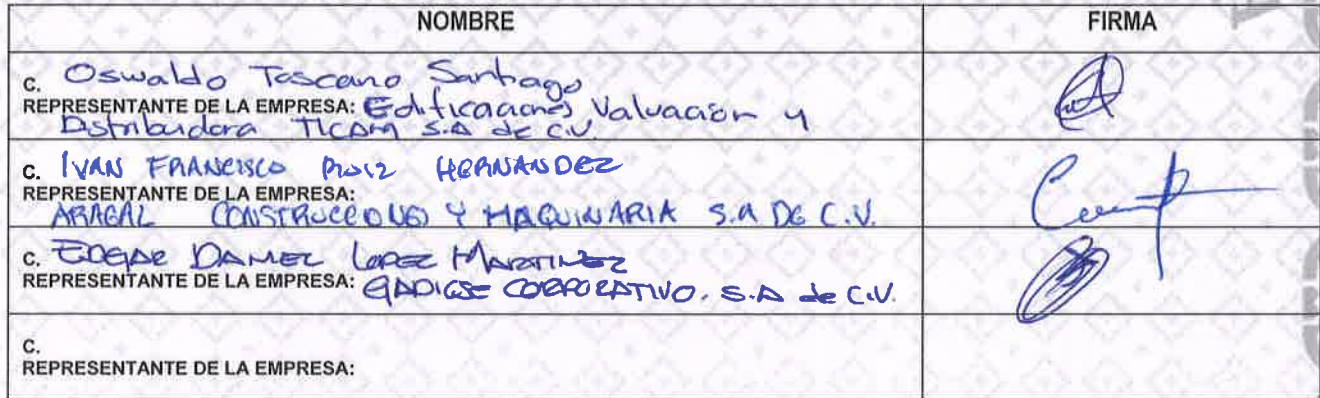 NOMBRE FIRMA
C. Oswaldo Toscano Santiago
REPRESENTANTE DE LA EMPRESA: Edificaciones Valuación y
Distribuidora TICAM S.A de C.V.
C. IVAN FRANCISCO RUIZ HERNANDEZ
REPRESENTANTE DE LA EMPRESA:
ARAGAL CONSTRUCCIONES Y MAQUINARIA S.A DE C.V.
C. EDGAR DANIEL LOPEZ MARTINEZ
REPRESENTANTE DE LA EMPRESA: GADIGSE CORPORATIVO, S.A de C.V.
C.
REPRESENTANTE DE LA EMPRESA: